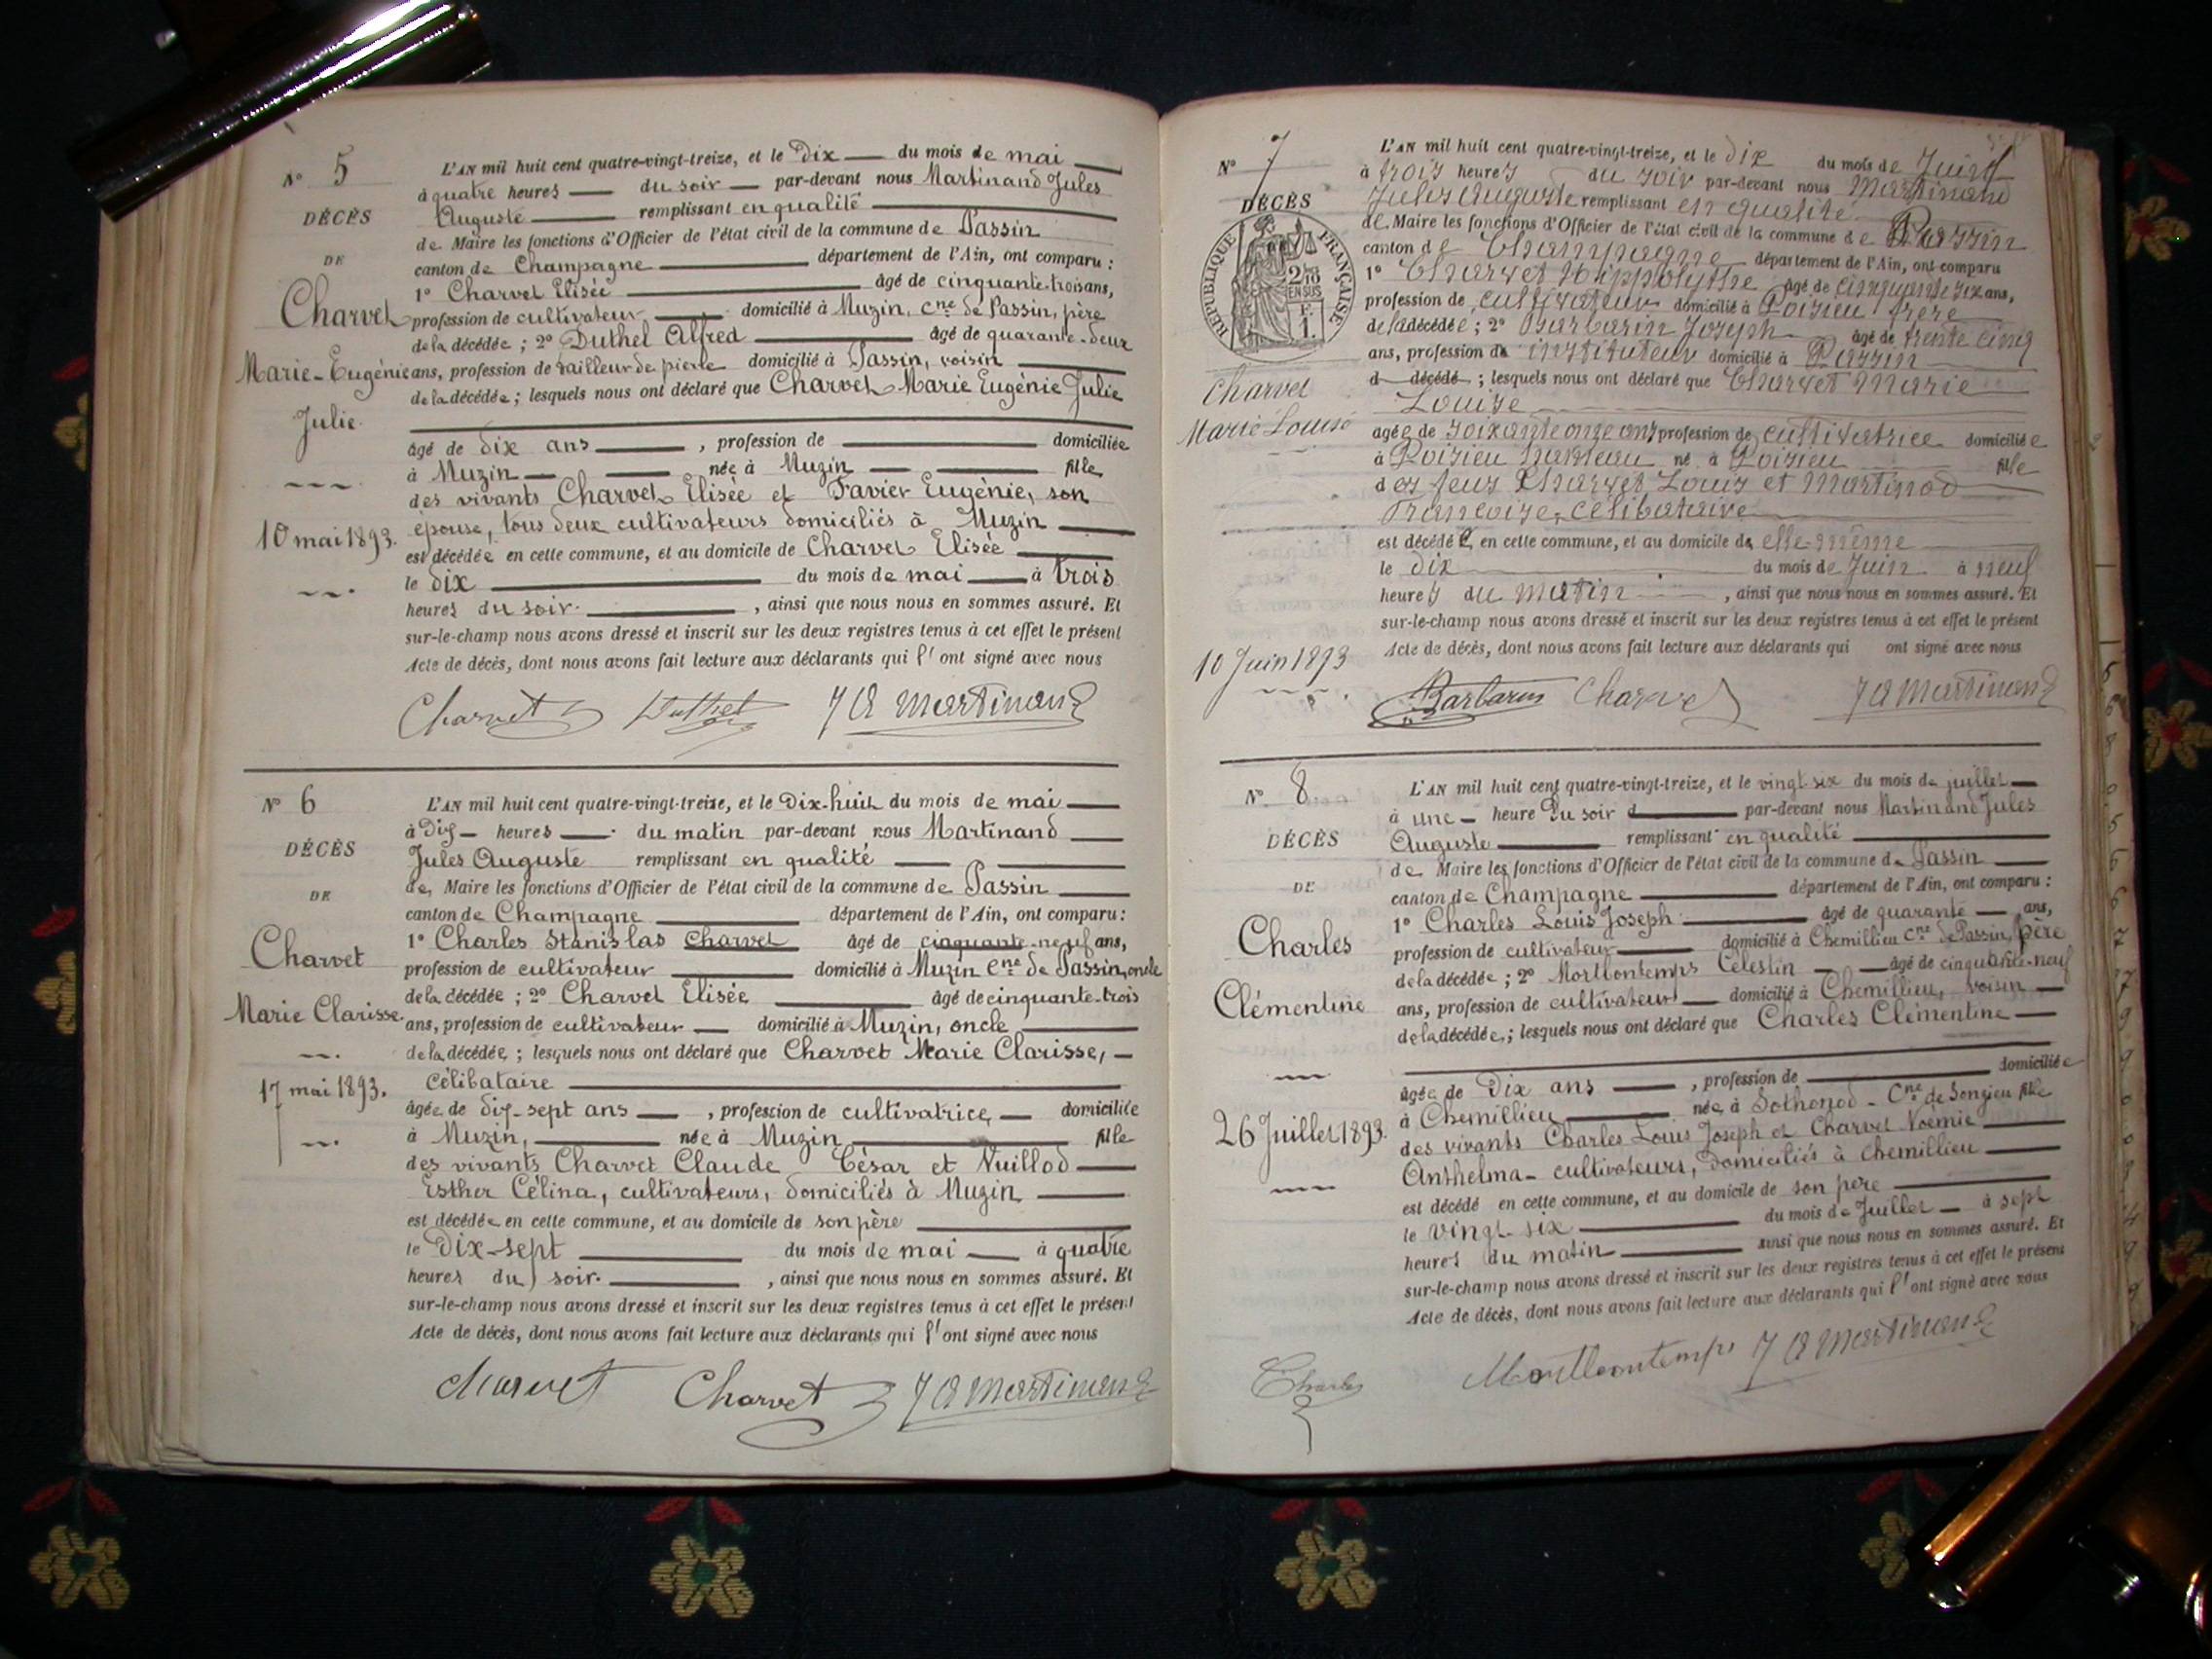 N° 5
DÉCÈS
DE
Charvet
Marie-Eugénie
Julie.
10 mai 1893.
L'AN mil huit cent quatre-vingt-treize, et le Dix du mois de mai
à quatre heures du soir par-devant nous Martinand Jules
Auguste remplissant en qualité
de Maire les fonctions d'Officier de l'état civil de la commune de Passin
canton de Champagne département de l'Ain, ont comparu :
1° Charvet Elisée âgé de cinquante-trois ans,
profession de cultivateur domicilié à Muzin, cne de Passin, père
de la décédée ; 2° Duthel Alfred âgé de quarante-deux
ans, profession de tailleur de pierre domicilié à Passin, voisin
de la décédée ; lesquels nous ont déclaré que Charvet Marie Eugénie Julie
âgé de dix ans , profession de domiciliée
à Muzin née à Muzin fille
des vivants Charvet Elisée et Favier Eugénie, son
épouse, tous deux cultivateurs domiciliés à Muzin
est décédée en cette commune, et au domicile de Charvet Elisée
le dix du mois de mai à trois
heures du soir. , ainsi que nous nous en sommes assuré. Et
sur-le-champ nous avons dressé et inscrit sur les deux registres tenus à cet effet le présent
Acte de décès, dont nous avons fait lecture aux déclarants qui l'ont signé avec nous
Charvet Duthel J A Martinand
N° 6
DÉCÈS
DE
Charvet
Marie Clarisse.
17 mai 1893.
L'AN mil huit cent quatre-vingt-treize, et le Dix-huit du mois de mai
à Dix heures du matin par-devant nous Martinand
Jules Auguste remplissant en qualité
de Maire les fonctions d'Officier de l'état civil de la commune de Passin
canton de Champagne département de l'Ain, ont comparu :
1° Charles Stanislas Charvet âgé de cinquante-neuf ans,
profession de cultivateur domicilié à Muzin Cne de Passin, oncle
de la décédée ; 2° Charvet Elisée âgé de cinquante-trois
ans, profession de cultivateur domicilié à Muzin, oncle
de la décédée ; lesquels nous ont déclaré que Charvet Marie Clarisse,
célibataire
âgée de dix-sept ans , profession de cultivatrice, domiciliée
à Muzin, née à Muzin fille
des vivants Charvet Claude César et Vuillod
Esther Célina, cultivateurs, domiciliés à Muzin
est décédée en cette commune, et au domicile de son père
le Dix-sept du mois de mai à quatre
heures du soir. , ainsi que nous nous en sommes assuré. Et
sur-le-champ nous avons dressé et inscrit sur les deux registres tenus à cet effet le présent
Acte de décès, dont nous avons fait lecture aux déclarants qui l'ont signé avec nous
Charvet Charvet J A Martinand
N° 7
DÉCÈS
RÉPUBLIQUE FRANÇAISE
2/10 EN SUS
F. 1.
Charvet
Marie Louise
10 Juin 1893
L'AN mil huit cent quatre-vingt-treize, et le dix du mois de Juin
à trois heures du soir par-devant nous Martinand
Jules Auguste remplissant en qualité
de Maire les fonctions d'Officier de l'état civil de la commune de Passin
canton de Champagne département de l'Ain, ont comparu
1° Charvet Hippolythe âgé de cinquante six ans,
profession de cultivateur domicilié à Poisieu frère
de la décédée ; 2° Barbarin Joseph âgé de trente cinq
ans, profession de instituteur domicilié à Passin
d décédé ; lesquels nous ont déclaré que Charvet Marie
Louise
agée de soixante onze ans profession de cultivatrice domiciliée
à Poisieu hameau né à Poisieu fille
des feus Charvet Louis et Martinod
Françoise, célibataire
est décédée en cette commune, et au domicile de elle-même
le dix du mois de Juin à neuf
heures du matin , ainsi que nous nous en sommes assuré. Et
sur-le-champ nous avons dressé et inscrit sur les deux registres tenus à cet effet le présent
Acte de décès, dont nous avons fait lecture aux déclarants qui ont signé avec nous
Barbarin Charvet J A Martinand
N° 8.
DÉCÈS
DE
Charles
Clémentine
26 Juillet 1893.
L'AN mil huit cent quatre-vingt-treize, et le vingt-six du mois de juillet
à une heure du soir par-devant nous Martinand Jules
Auguste remplissant en qualité
de Maire les fonctions d'Officier de l'état civil de la commune de Passin
canton de Champagne département de l'Ain, ont comparu :
1° Charles Louis Joseph âgé de quarante ans,
profession de cultivateur domicilié à Chemillieu Cne de Passin, père
de la décédée ; 2° Montlontemps Célestin âgé de cinquante-neuf
ans, profession de cultivateur domicilié à Chemillieu, voisin
de la décédée ; lesquels nous ont déclaré que Charles Clémentine
âgée de Dix ans , profession de domiciliée
à Chemillieu née à Sothonod - Cne de Songieu fille
des vivants Charles Louis Joseph et Charvet Noémie
Anthelma cultivateurs, domiciliés à Chemillieu
est décédé en cette commune, et au domicile de son père
le vingt-six du mois de Juillet à sept
heures du matin ainsi que nous nous en sommes assuré. Et
sur-le-champ nous avons dressé et inscrit sur les deux registres tenus à cet effet le présent
Acte de décès, dont nous avons fait lecture aux déclarants qui l'ont signé avec nous
Charles Montlontemps J A Martinand